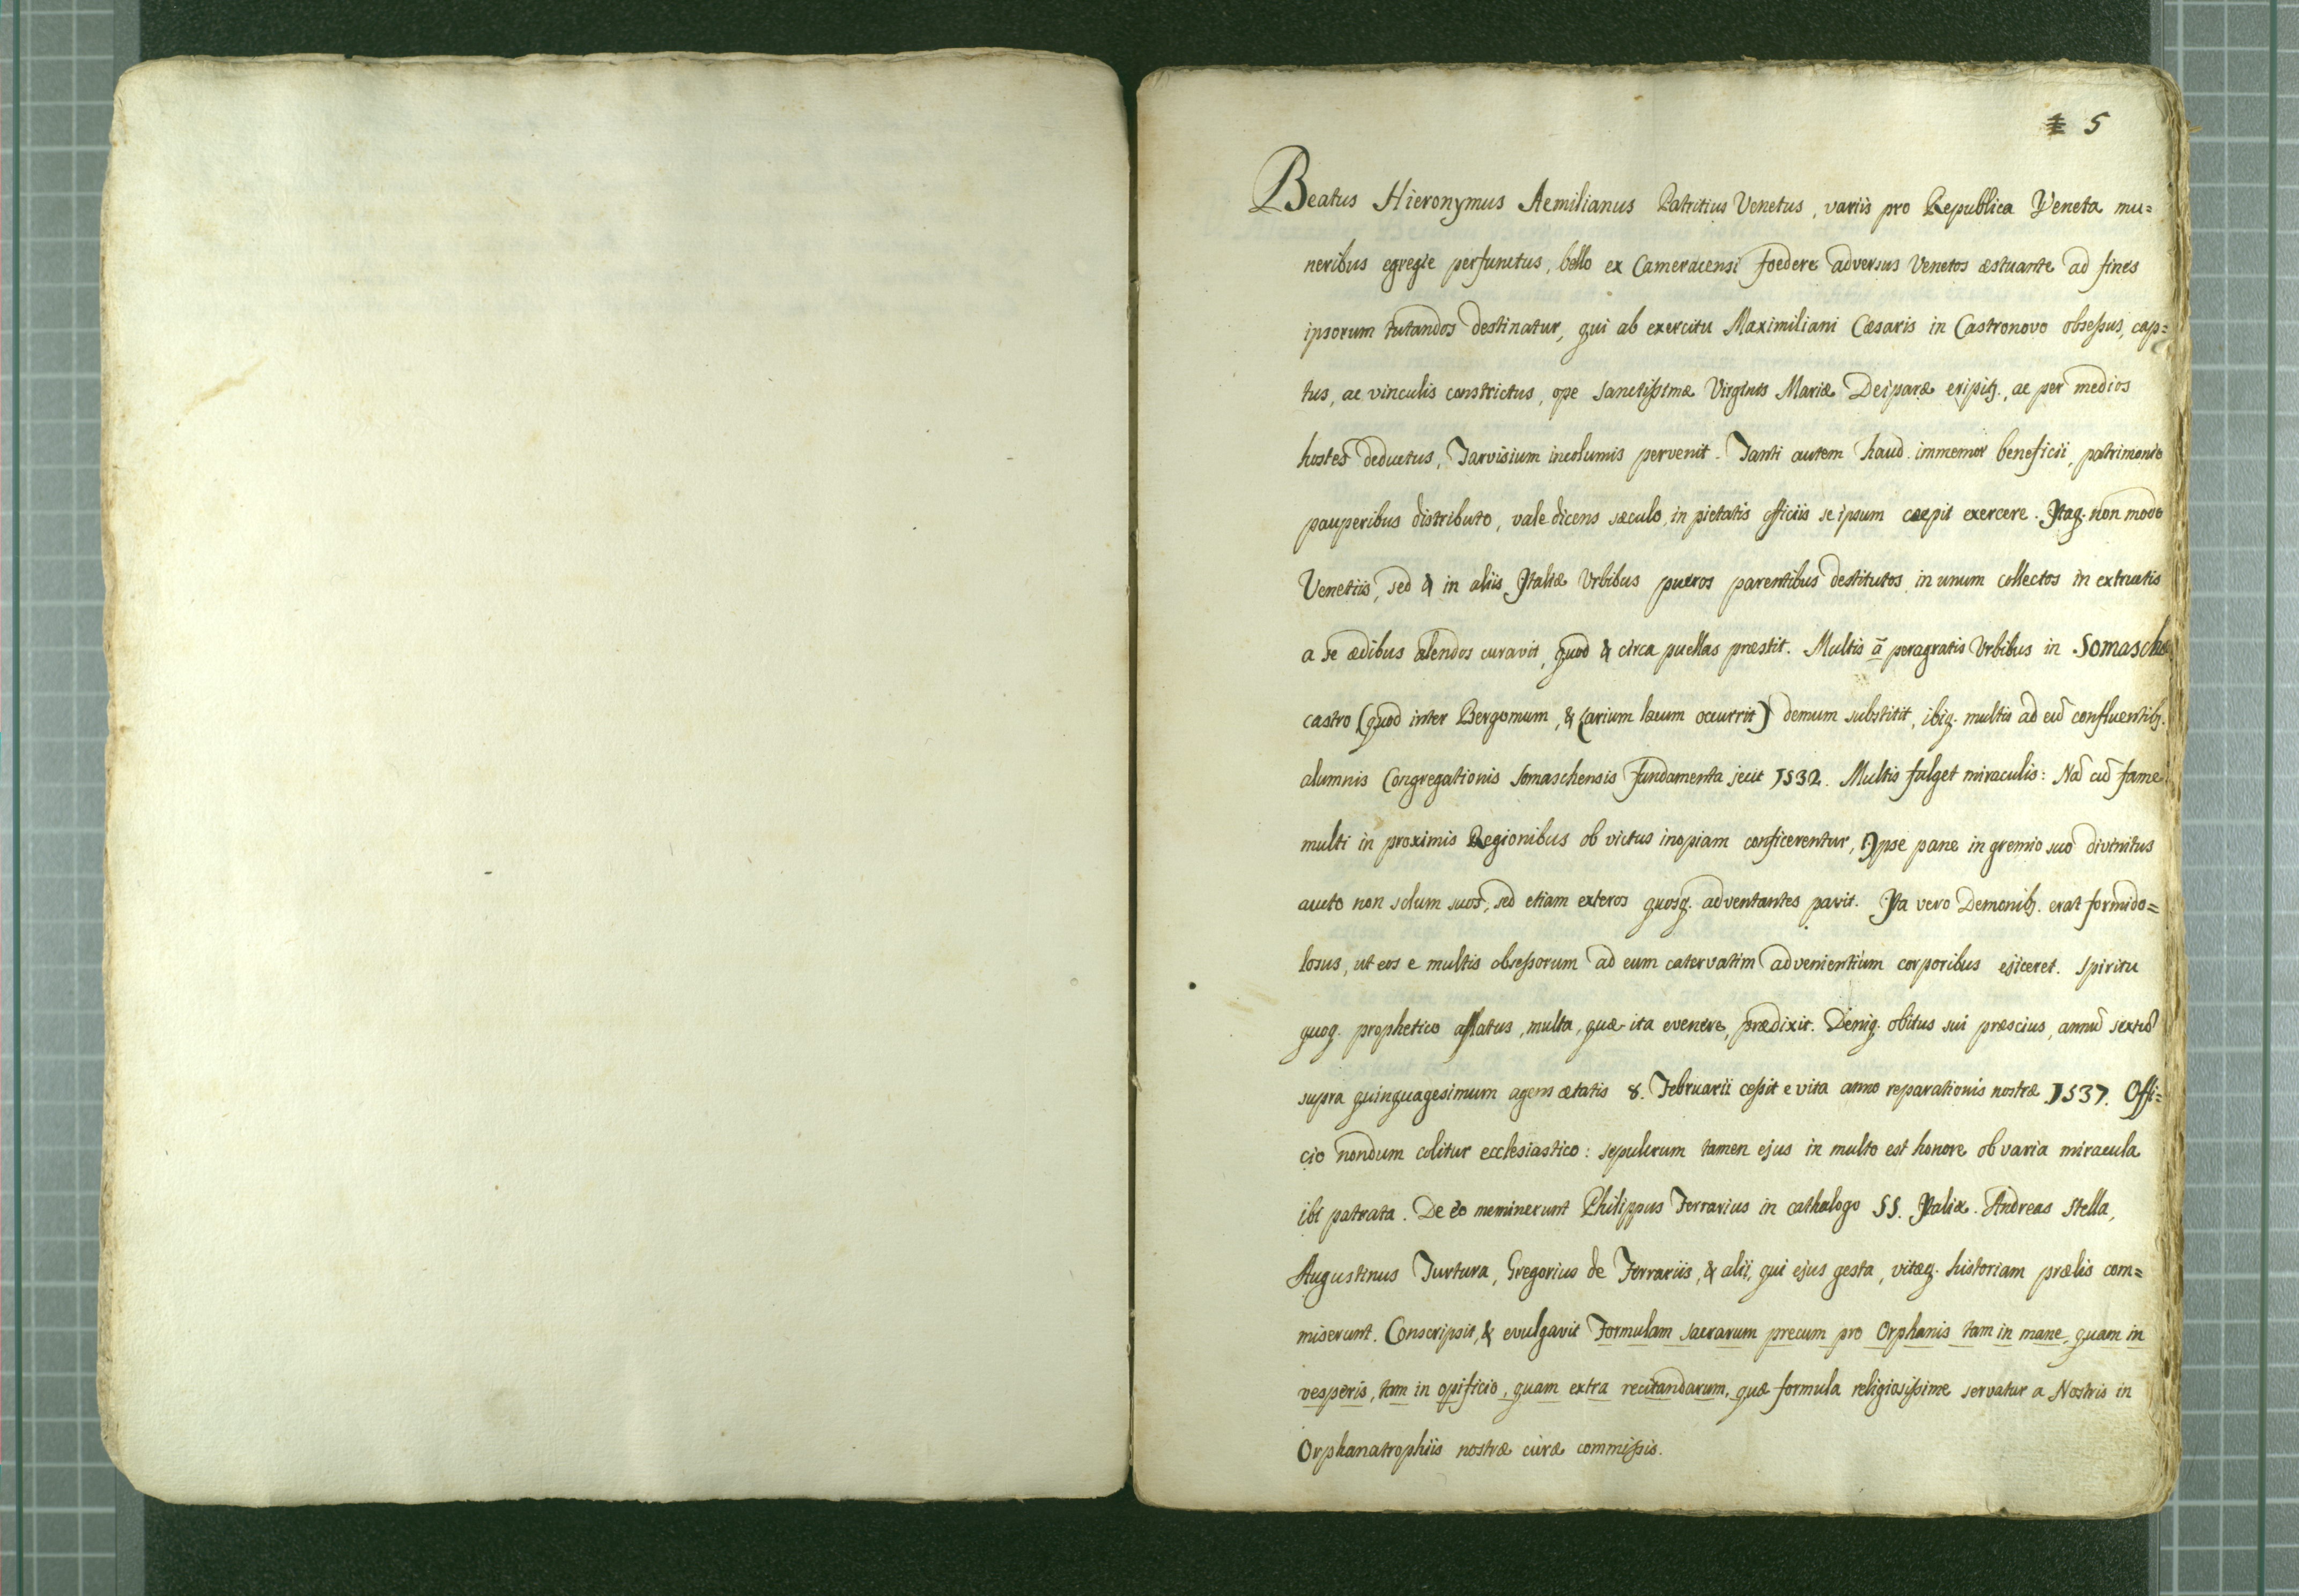 5
Beatus Hieronymus Aemilianus Patritius Venetus, variis pro Republica Veneta mu=
neribus egregie perfunctus, bello ex Cameracensi foedere adversus Venetos æstuante ad fines
ipsorum tutandos destinatur, qui ab exercitu Maximiliani Cæsaris in Castronovo obsessus, cap=
tus, ac vinculis constrictus, ope Sanctissimæ Virginis Mariæ Deiparæ eripitq., ac per medios
hostes deductus, Tarvisium incolumis pervenit. Tanti autem haud immemor beneficii, patrimonio
pauperibus distributo, vale dicens sæculo, in pietatis officiis se ipsum cæpit exercere. Itaq. non modo
Venetiis, sed & in aliis Italiæ Urbibus pueros parentibus destitutos in unum collectos in extructis
a se ædibus alendos curavit, quod & circa puellas præstit. Multis ā peragratis Urbibus in Somaschæ
castro (quod inter Bergomum, & Larium lacum occurrit) demum substitit, ibiq. multis ad eū confluentibq.
alumnis Congregationis Somaschensis fundamenta jecit 1532. Multis fulget miraculis: Nā cū fame
multi in proximis Regionibus ob victus inopiam conficerentur, Ipse pane in gremio suo divinitus
aucto non solum suos, sed etiam exteros quosq. adventantes pavit. Ita vero Demonibq. erat formido=
losus, ut eos e multis obsessorum ad eum catervatim advenientium corporibus ejiceret. Spiritu
quoq. prophetico afflatus, multa, quæ ita evenere, prædixit. Deniq. obitus sui præscius, annū sextū
supra quinquagesimum agens ætatis 8. Februarii cessit e vita anno reparationis nostræ 1537. Offi=
cio nondum colitur ecclesiastico: sepulcrum tamen ejus in multo est honore ob varia miracula
ibi patrata. De eo meminerunt Philippus Ferrarius in cathalogo SS. Italiæ. Andreas Stella,
Augustinus Turtura, Gregorius de Ferrariis, & alii, qui ejus gesta, vitæq. historiam prælis com=
miserunt. Conscripsit, & evulgavit Formulam sacrarum precum pro Orphanis tam in mane, quam in
vesperis, tam in opificio, quam extra recitandarum, quæ formula religiosissime servatur a Nostris in
Orphanatrophiis nostræ curæ commissis.